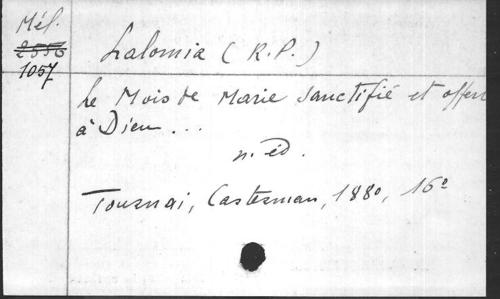 Mél.
2556
1057
Lalomia (R.P.)
Le Mois de Marie sanctifié et offert
à Dieu...
n. éd.
Tournai, Casterman, 1880, 16°